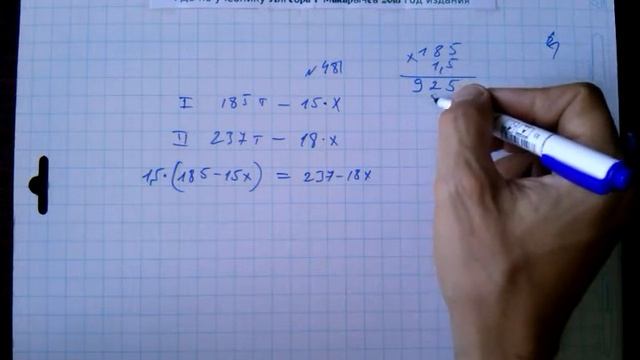 ГДЗ по учебнику Алгебра 7 Макарычев 2018 год издания
№ 481
I 185 т – 15·x
II 237 т – 18·x
1,5·(185 – 15x) = 237 – 18x
× 185
1,5
925